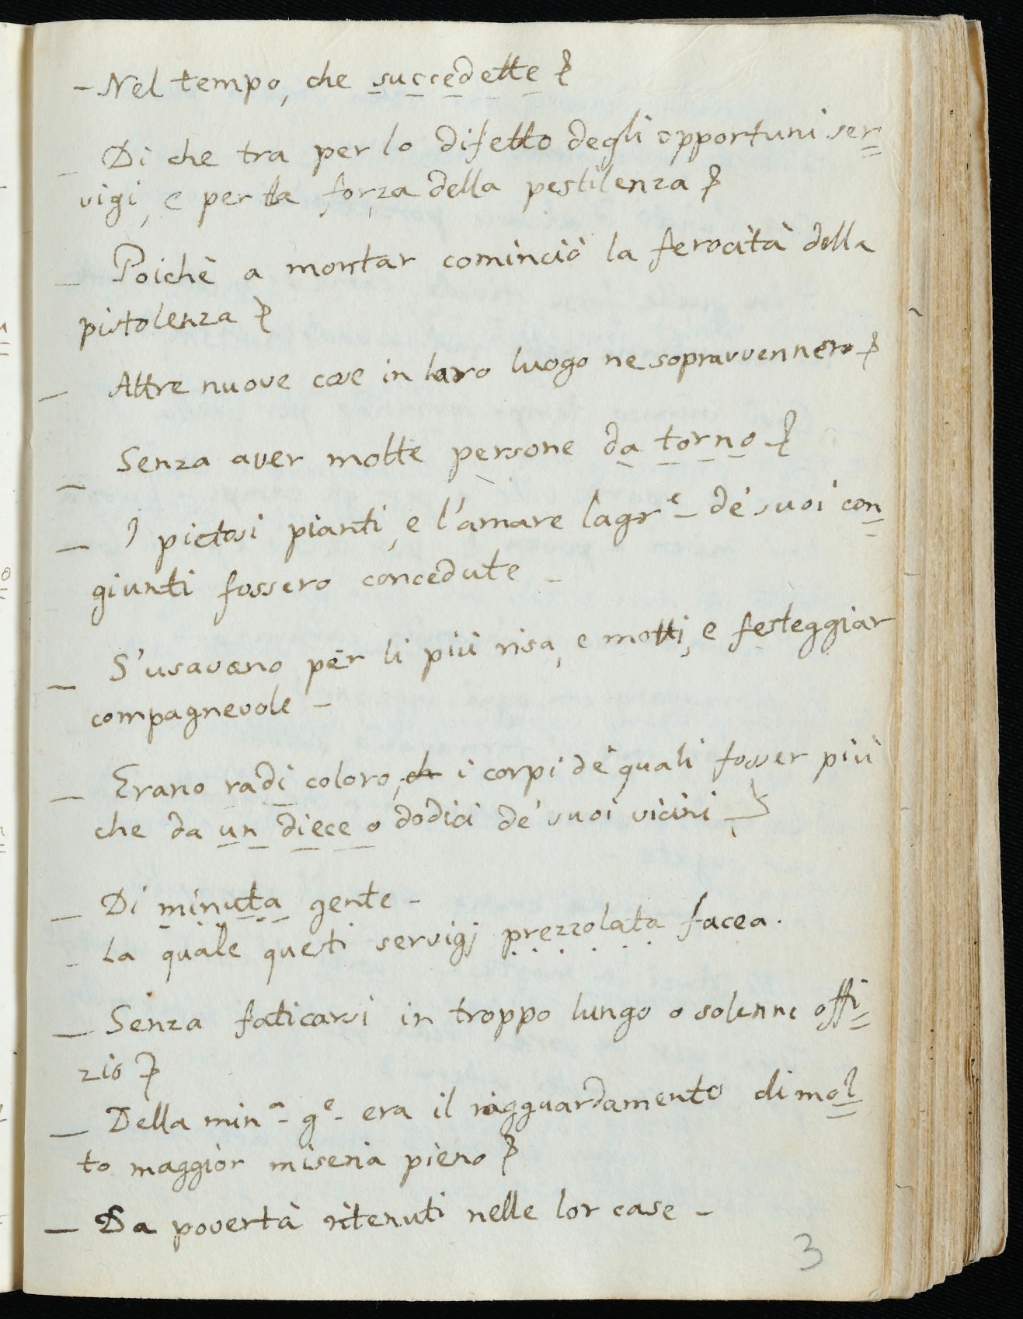 - Nel tempo, che succedette
- Di che tra per lo difetto degli opportuni ser=
vigi, e per la forza della pestilenza
- Poichè a montar cominciò la ferocità della
pistolenza
- Altre nuove cose in loro luogo ne sopravvennero
- Senza aver molte persone da torno
- I pietosi pianti, e l'amare lagre - de' suoi con=
giunti fossero concedute -
- S'usavano per li più risa, e motti, e festeggiar
compagnevole -
- Erano radi coloro, i corpi de' quali fosser più
che da un diece o dodici de' suoi vicini
- Di minuta gente -
- La quale questi servigj prezzolata facea.
- Senza faticarsi in troppo lungo o solenne offi=
zio
- Della mina - ge - era il ragguardamento di mol=
to maggior miseria pieno
- Da povertà ritenuti nelle lor case -
3